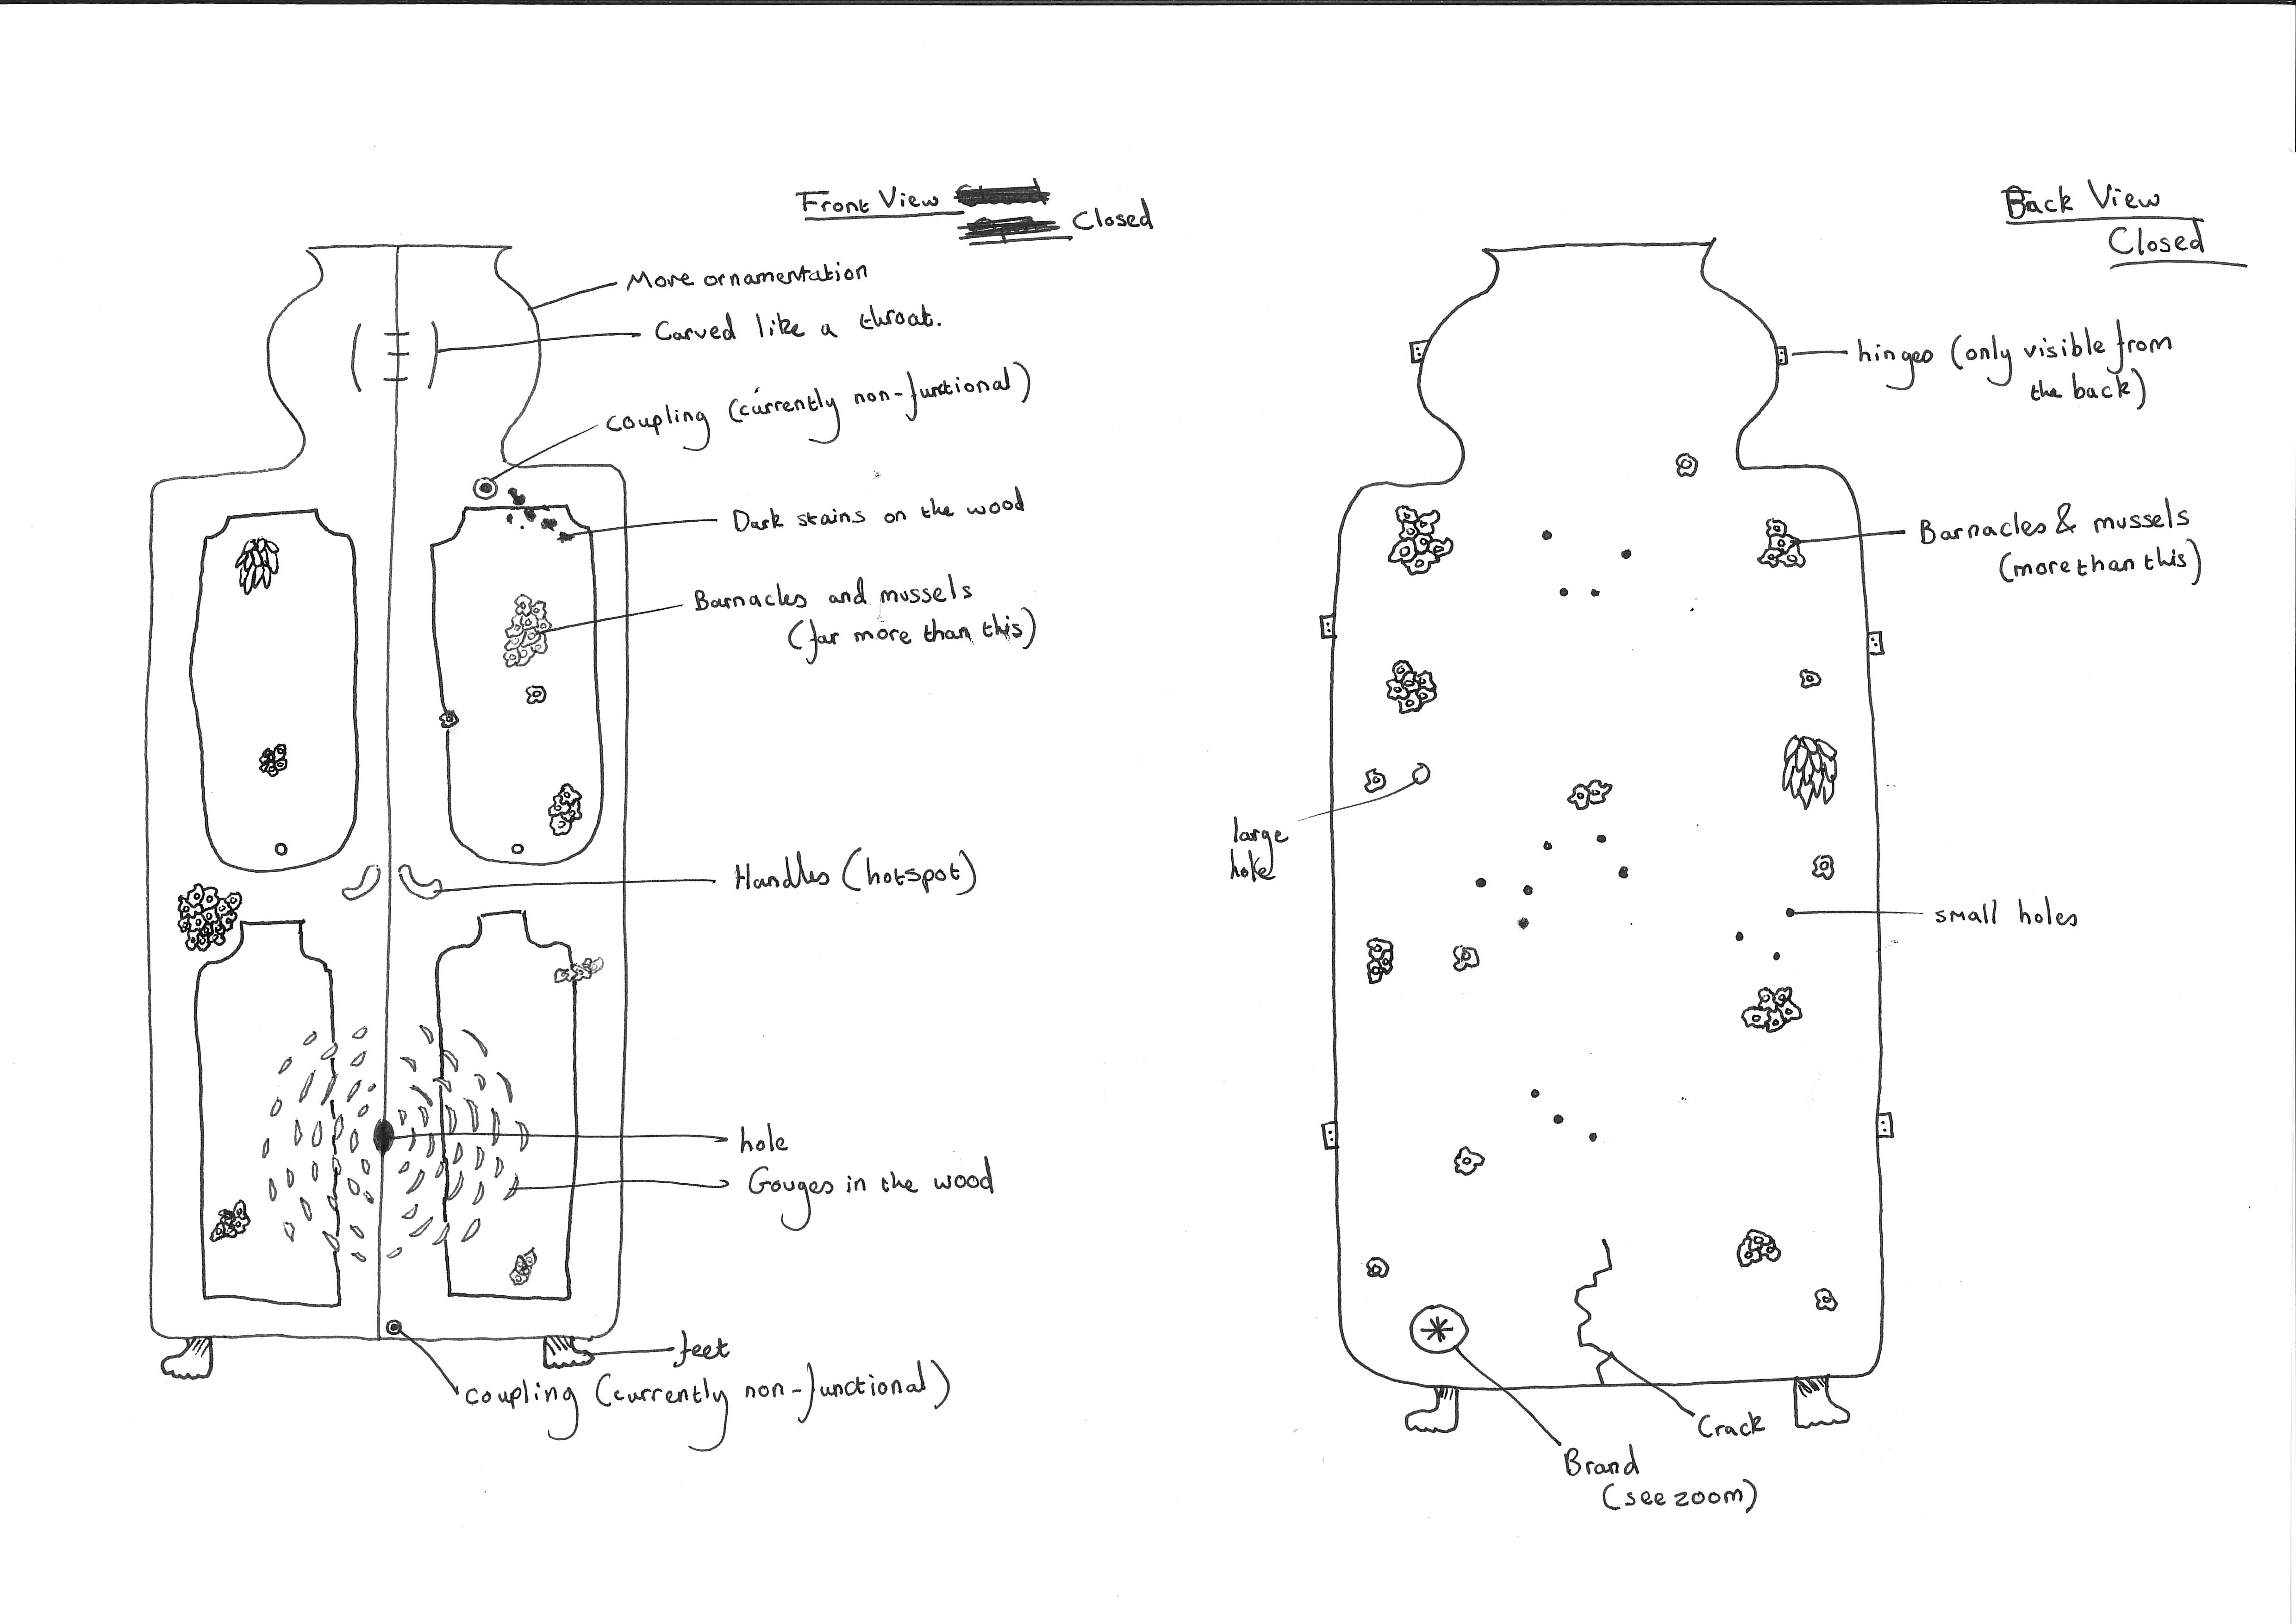 Front View
Closed
More ornamentation
Carved like a throat.
coupling (currently non-functional)
Dark stains on the wood
Barnacles and mussels
(far more than this)
Handles (hotspot)
hole
Gouges in the wood
feet
coupling (currently non-functional)
Back View
Closed
hinges (only visible from
the back)
Barnacles & mussels
(more than this)
large
hole
small holes
Crack
Brand
(see zoom)